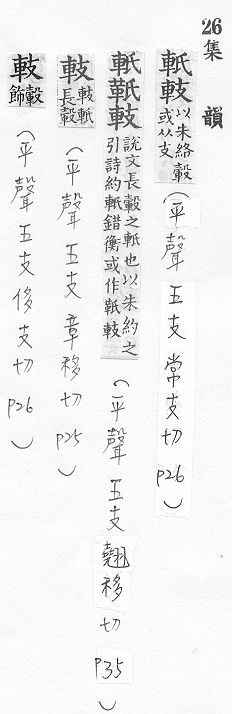 26集韻
軝䡋以朱絡轂或从支(平聲五支常支切p26)
軝䩚䡋說文長轂之軝也以朱約之引詩約軝錯衡或作䩚䡋(平聲五支翹移切p35)
䡋長轂䡋軝(平聲五支章移切p25)
䡋轂飾(平聲五支侈支切p26)